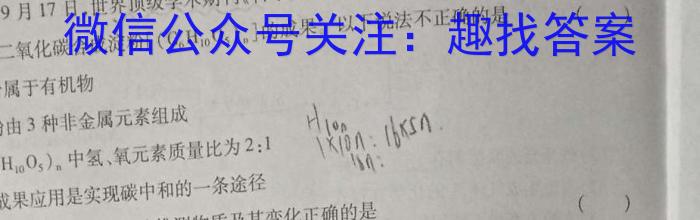 9月17日,世界顶级学术期刊
微信公众号关注:趣找答案
二氧化碳 淀粉[(C₆H₁₀O₅)ₙ]的成果。以下说法不正确的是 ( )
属于有机物
由3种非金属元素组成
H₁₀O₅)ₙ中氢、氧元素质量比为2:1
成果应用是实现碳中和的一条途径
( )
物质及其变化正确的是
H10n
1×10n:16×5n.
10n: